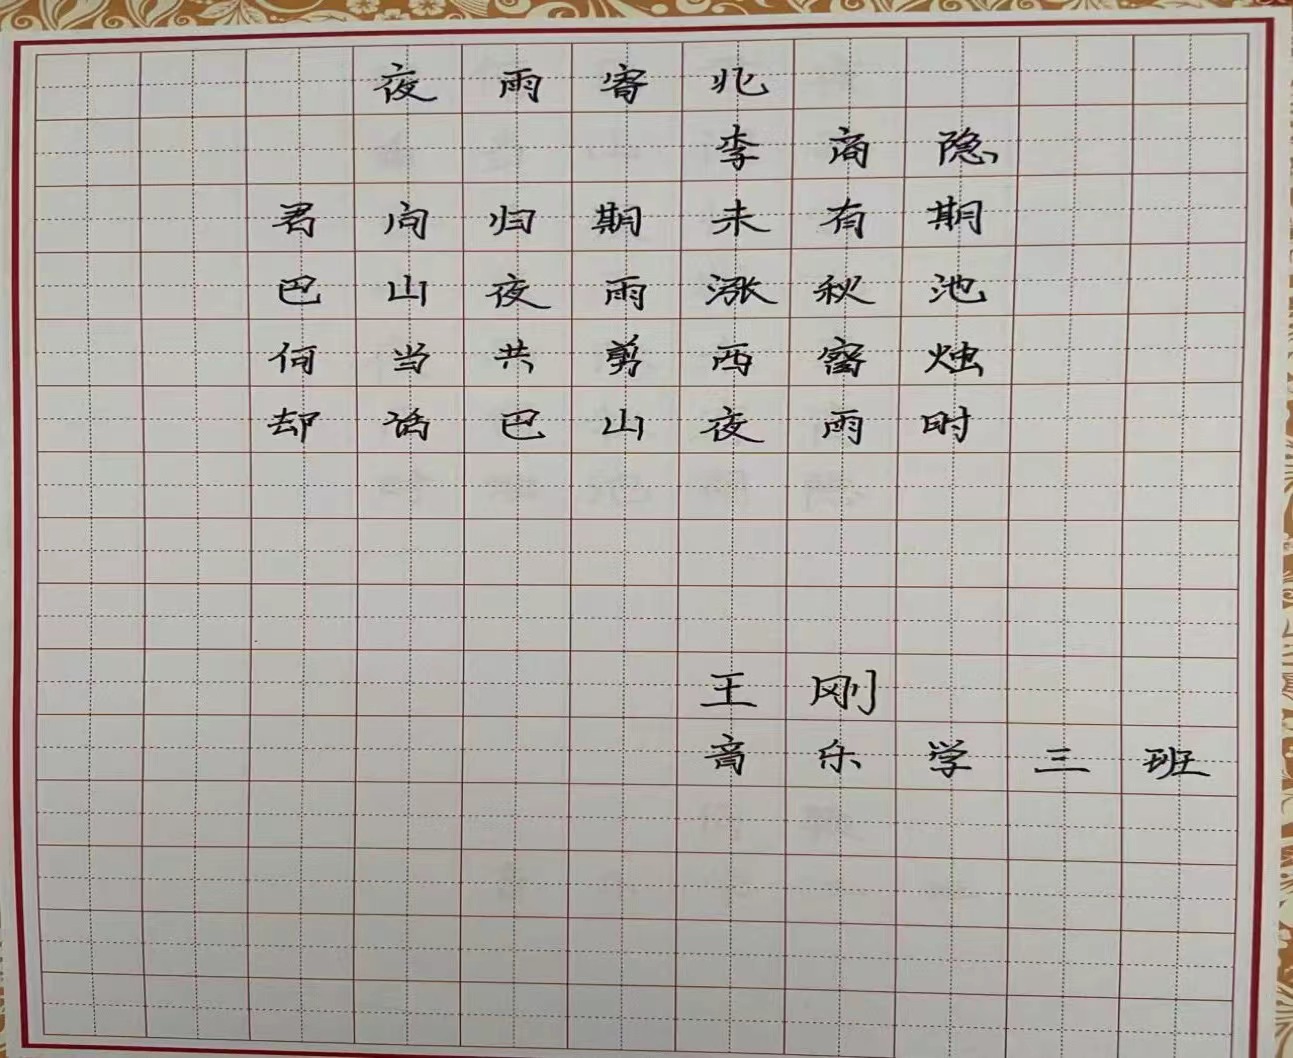 夜雨寄北
李商隐
君问归期未有期
巴山夜雨涨秋池
何当共剪西窗烛
却话巴山夜雨时
王刚
音乐学三班